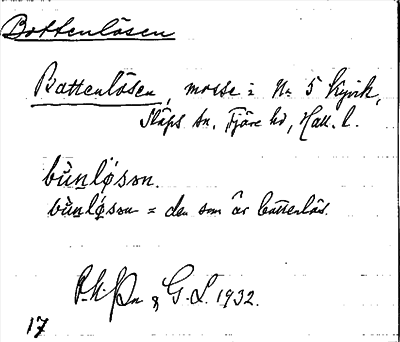 Bottenlösen
Bottenlösen, mosse i N: 5 Kyvik,
Släps sn, Fjäre hd, Hall. l.
bùnlǿsən.
bùnlǿsən = den som är bottenlös.
& G. L. 1932.
17